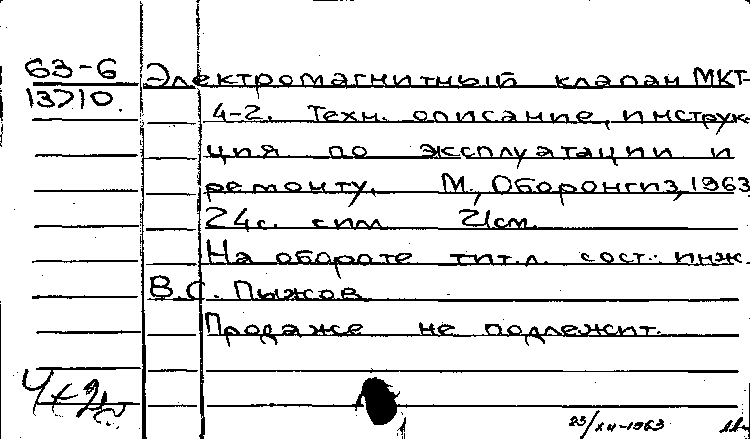 63-6 Электромагнитный клапан МКТ-
13710. 4-2. Техн. описание, инструк-
ция по эксплуатации и
ремонту. М., Оборонгиз, 1963
24с. с илл. 21см.
На обороте тит.л. сост.: инж.
В.С. Пыжов
Продаже не подлежит.
23/XII-1963